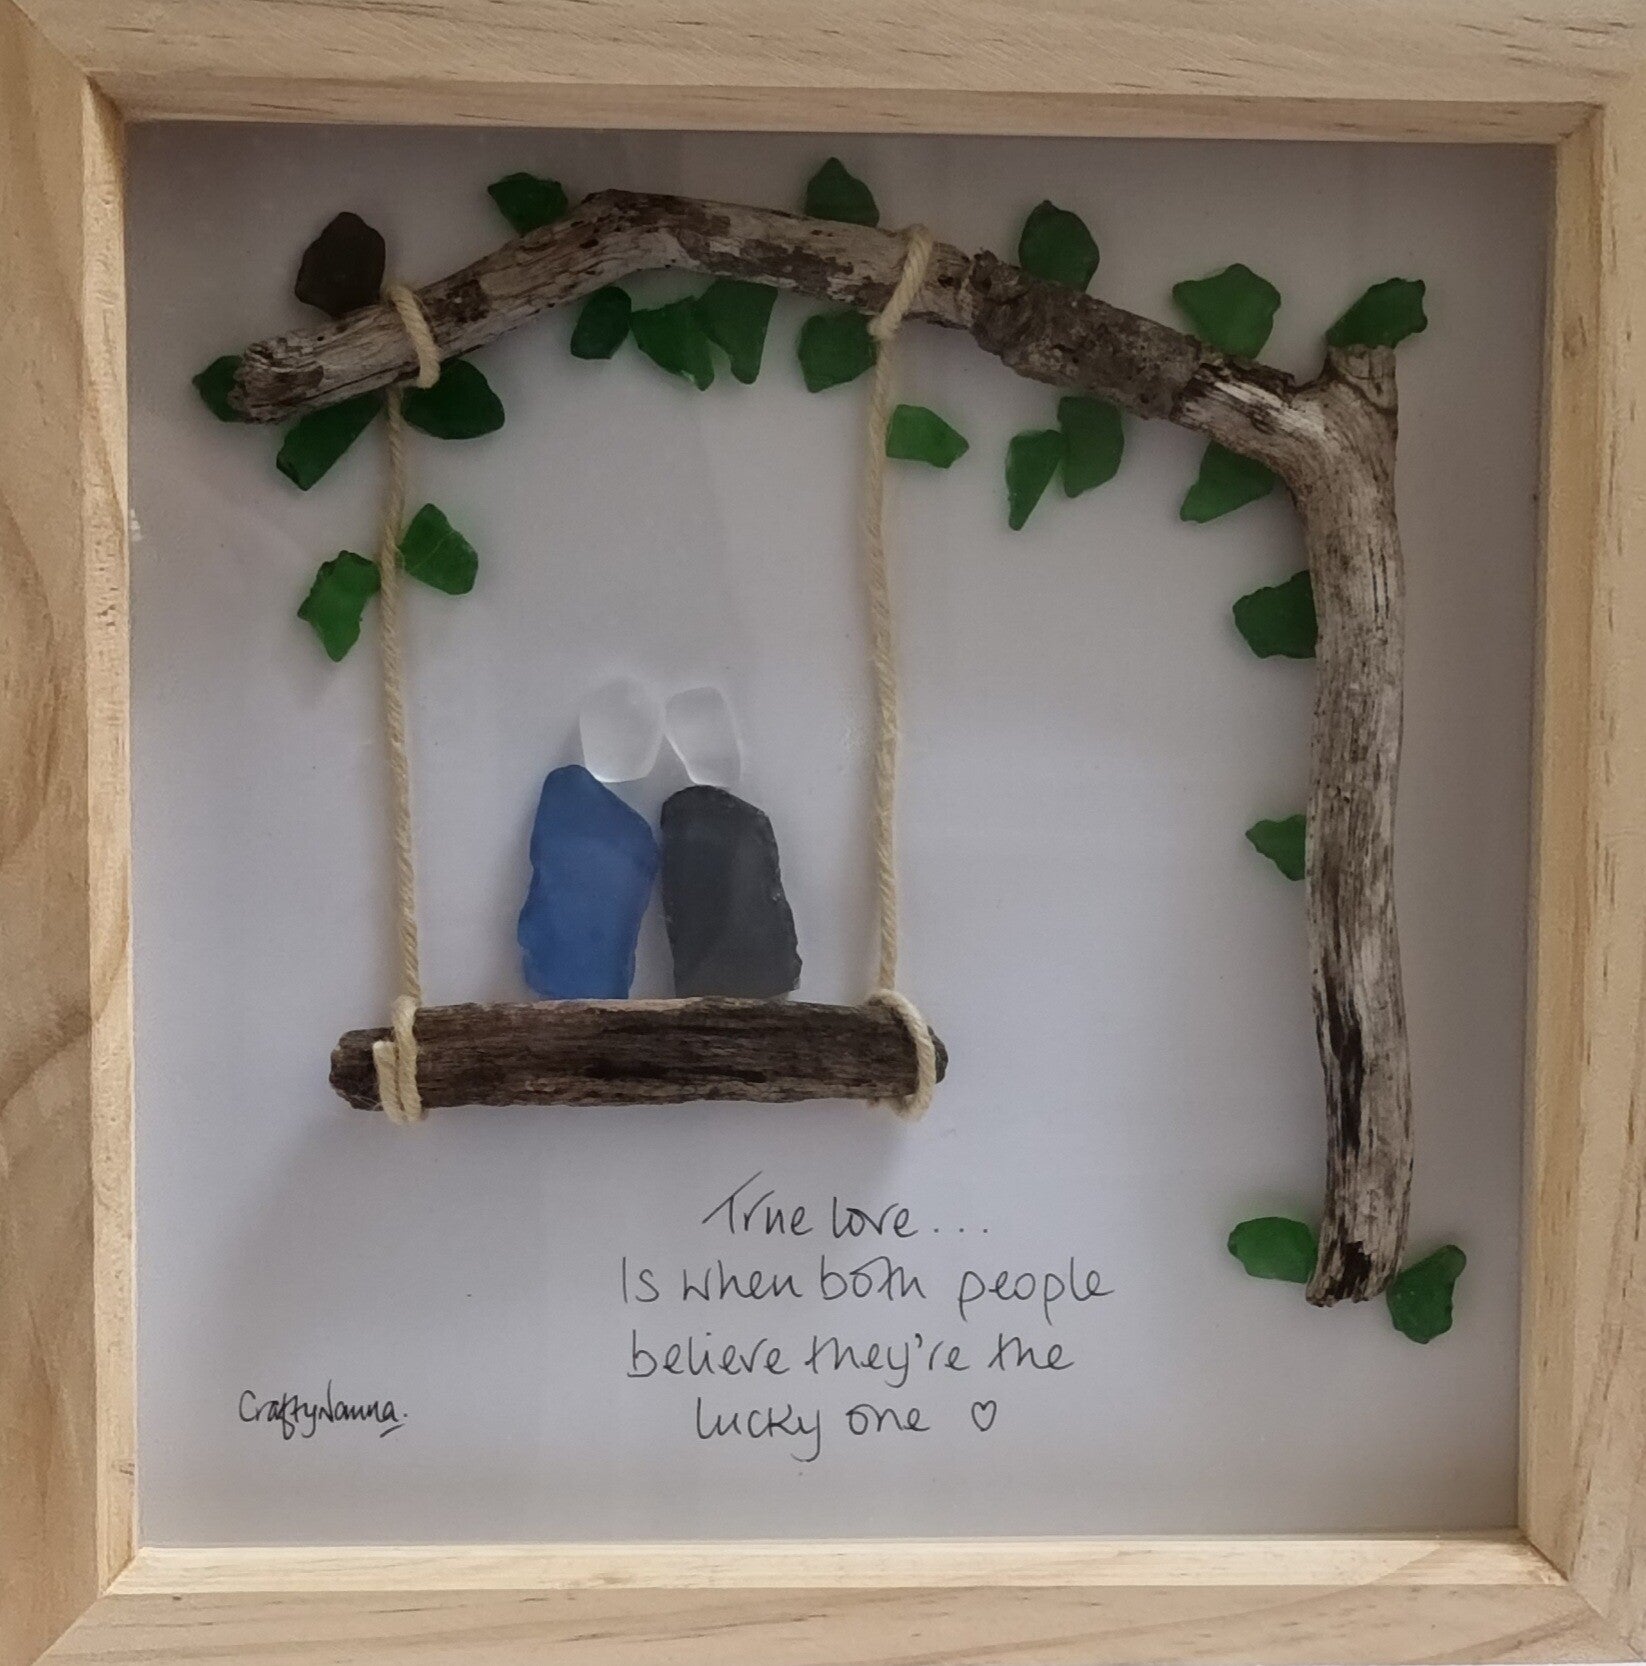 True love...
Is when both people
believe they're the
lucky one ♡
CraftyNanna.